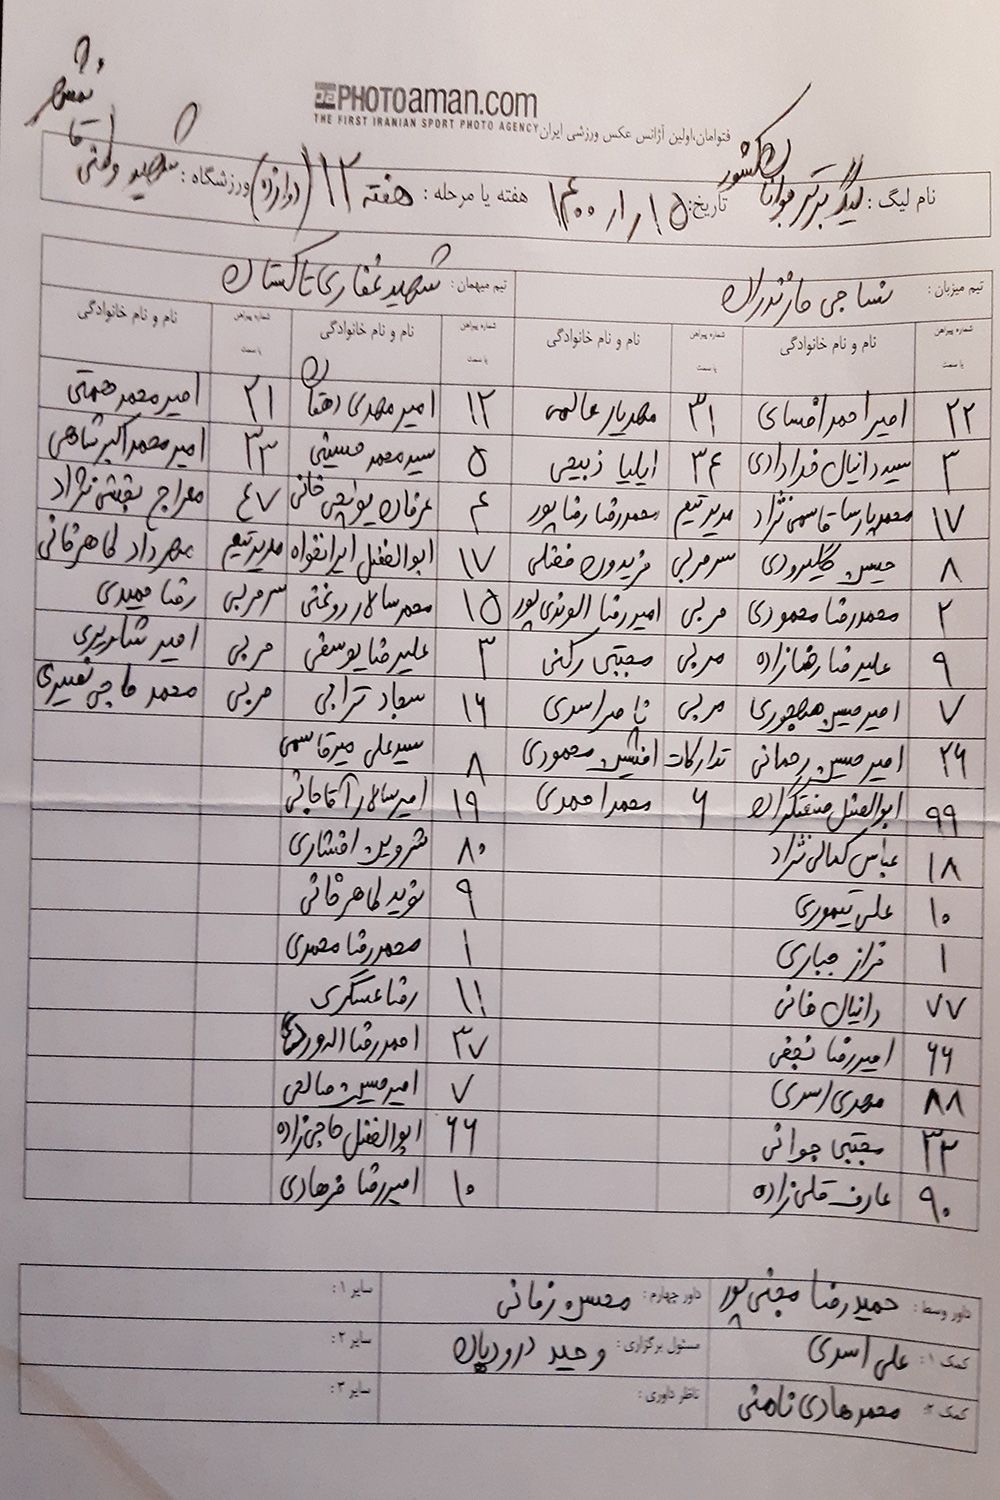 PHOTOaman.com
THE FIRST IRANIAN SPORT PHOTO AGENCY
فتوامان،اولین آژانس عکس ورزشی ایران
نام لیگ : لیگ برتر جوانان کشور تاریخ: ۱۵ ر ۱ ر ۱۴۰۰ هفته یا مرحله : هفته ۱۲ (دوازده) ورزشگاه : شهید وطنی قائمشهر
تیم میزبان : نساجی مازندران تیم میهمان : شهید غفاری تاکستان
شماره پیراهن یا سمت نام و نام خانوادگی شماره پیراهن یا سمت نام و نام خانوادگی شماره پیراهن یا سمت نام و نام خانوادگی شماره پیراهن یا سمت نام و نام خانوادگی
۲۲ امیر احمد افسای ۳۱ مهدیار عالمی ۱۲ امیر مهدی دهقان ۲۱ امیر محمد همتی
۳ سید دانیال خدادادی ۳۴ ایلیا ذبیحی ۵ سید محمد حسینی ۳۳ امیر محمد اکبر شاهی
۱۷ محمد پارسا قاسمی نژاد مدیر تیم محمدرضا رضاپور ۴ عرفان یوزچی خانی ۴۷ معراج بخشی نژاد
۸ حسین کلیرودی سرمربی فریدون فضلی ۱۷ ابوالفضل ایرانخواه مدیر تیم مهرداد طاهرخانی
۲ محمدرضا محمودی مربی امیررضا الوندی پور ۱۵ محمد سالار روغنی سرمربی رضا حمیدی
۹ علیرضا رضازاده مربی مجتبی رکنی ۳ علیرضا یوسفی مربی امیر شاریری
۷ امیرحسین مهجوری مربی ناصر اسدی ۱۶ سجاد ترابی مربی محمد حاجی نصیری
۲۶ امیر حسین رحمانی تدارکات افشین محمودی ۸ سید علی میرقاسمی
۹۹ ابوالفضل صنعتگران ۶ محمد احمدی ۱۹ امیر سالار آقاجانی
۱۸ عباس کمالی نژاد ۸۰ شروین افشاری
۱۰ علی تیموری ۹ نوید طاهرخانی
۱ فراز جباری ۱ محمدرضا محمدی
۷۷ دانیال خانی ۱۱ رضا عسگری
۶۶ امیررضا نجفی ۳۷ احمدرضا
۸۸ مهدی اسدی ۷ امیرحسین صالحی
۳۳ مجتبی جوانی ۶۶ ابوالفضل حاجی زاده
۹۰ عارف قلی زاده ۱۰ امیررضا فرهادی
داور وسط : حمیدرضا مجنی پور داور چهارم : محسن زمانی سایر ۱ :
کمک ۱ : علی اسدی مسئول برگزاری : وحید درودیان سایر ۲ :
کمک ۲ : محمد هادی ضامنی ناظر داوری : سایر ۳ :